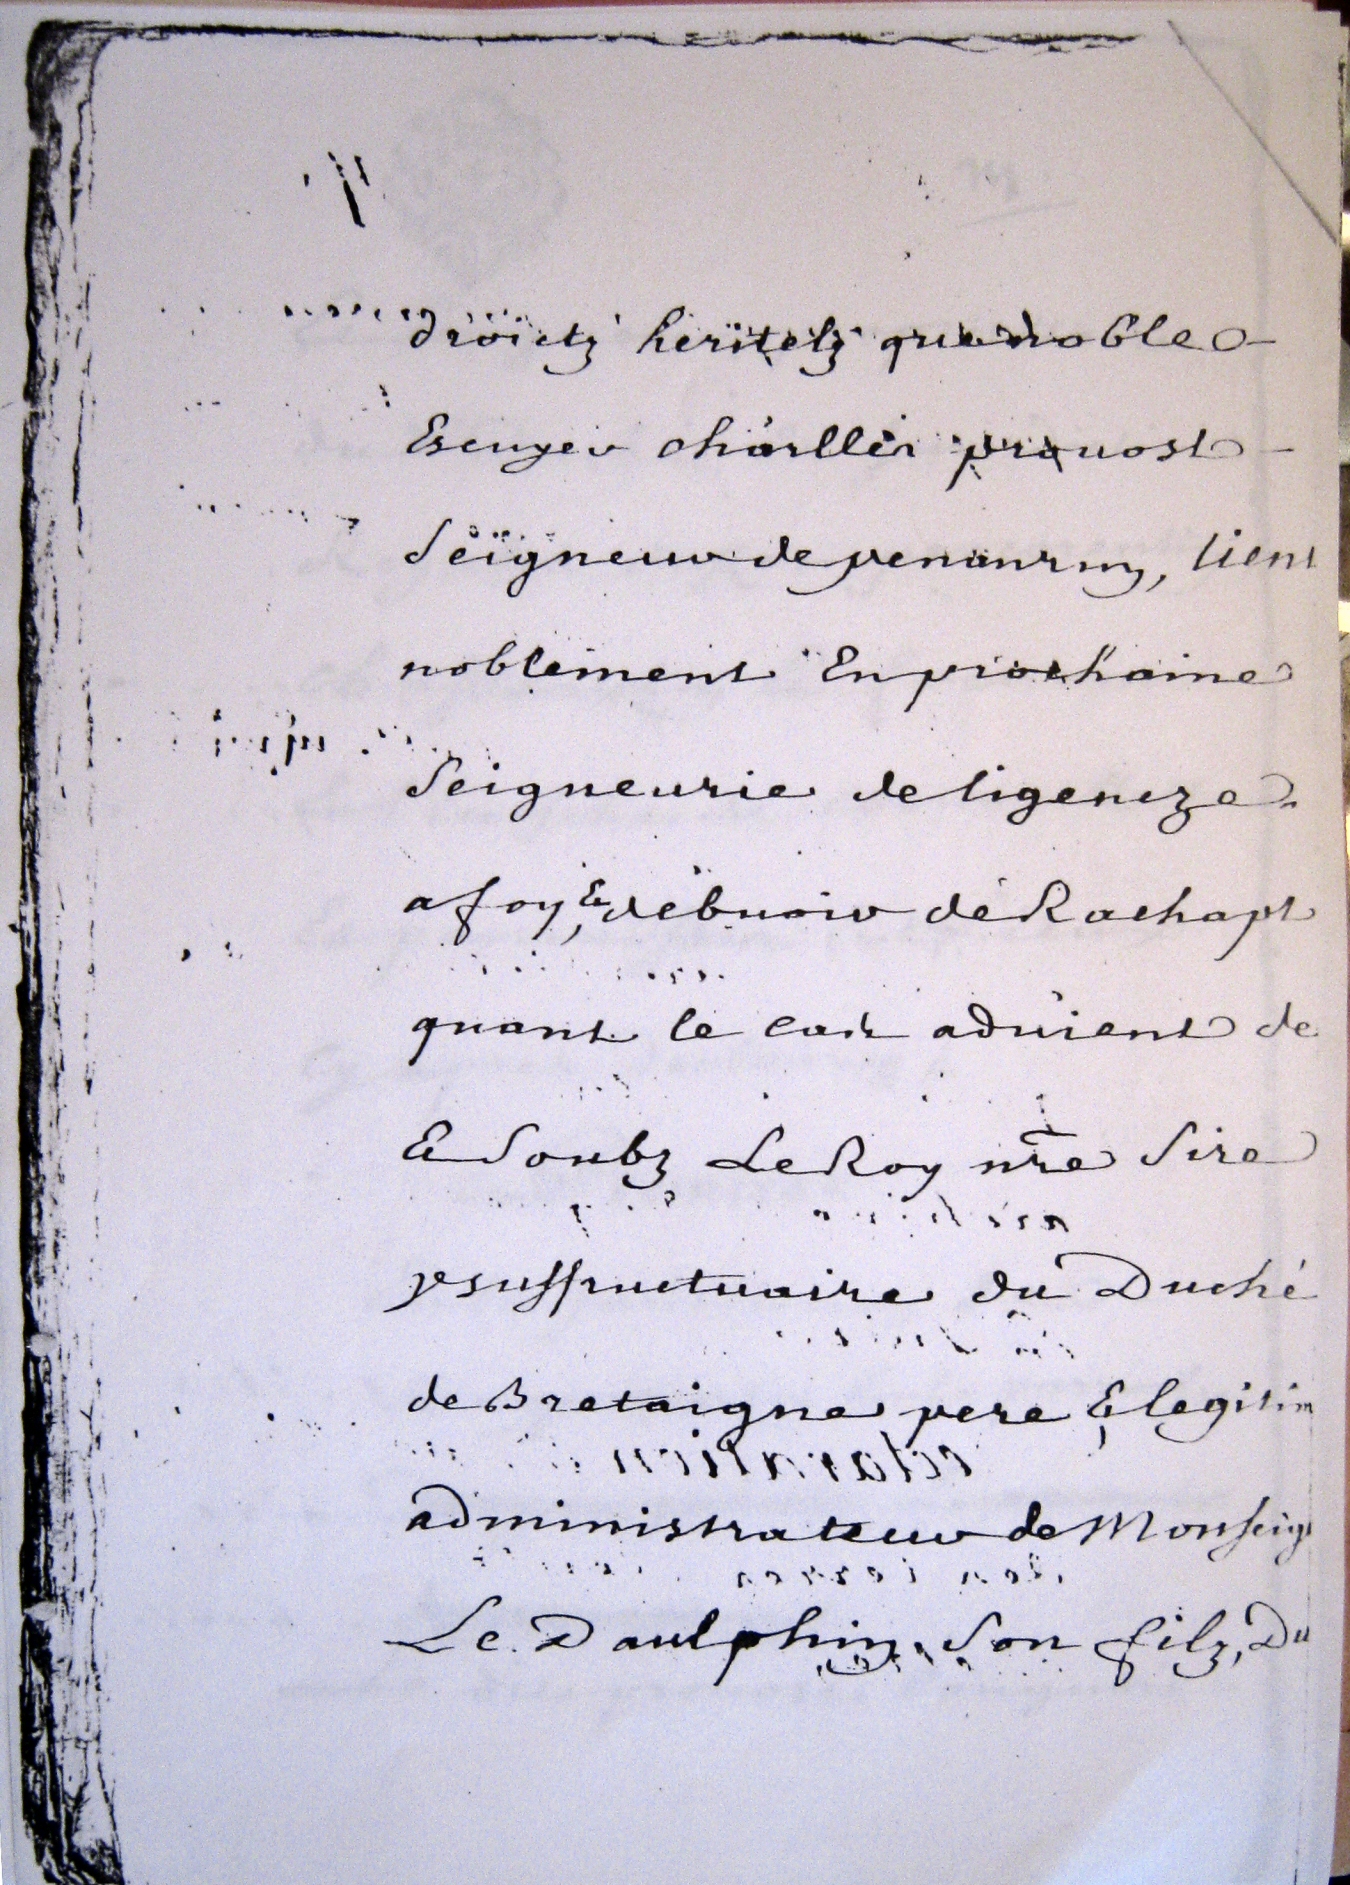 droictz heritelz que noble
Escuyer charlles prouost
Seigneur de penanrun, tient
noblement En prochaine
Seigneurie de ligencze
a foy, & debuoir de Rachapt
quant le cas aduient de
& Soubz Le Roy nr̃e Sire
ysuffructuaire du Duché
de Bretaigne pere & legitim
administrateur de Monseig
Le Daulphin, Son filz, Du